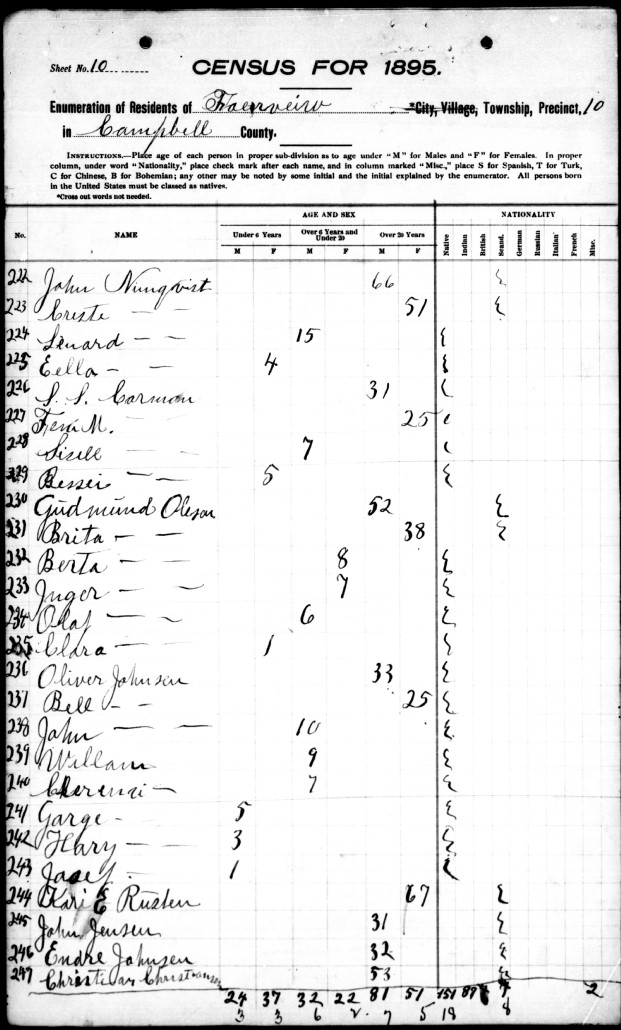 Sheet No. 10
CENSUS FOR 1895.
Enumeration of Residents of *City, Village, Township, Precinct, 10
in Campbell County.
INSTRUCTIONS.—Place age of each person in proper sub-division as to age under "M" for Males and "F" for Females. In proper
column, under word "Nationality," place check mark after each name, and in column marked "Misc.," place S for Spanish, T for Turk,
C for Chinese, B for Bohemian; any other may be noted by some initial and the initial explained by the enumerator. All persons born
in the United States must be classed as natives.
*Cross out words not needed.
AGE AND SEX NATIONALITY
No. NAME Under 6 Years Over 6 Years and Under 20 Over 20 Years Native Indian British Scand. German Russian Italian French Misc.
M F M F M F
222 John Nunqvist 66
223 Creste — — 51
224 Lenard — — 15
225 Eella — — 4
226 S. S. Carman 31
227 M. 25
228 Sisell — — 7
229 Bessie — — 5
230 Gudmund Oleson 52
231 Brita — — 38
232 Berta — — 8
233 Inger — — 7
234 Olaf — — 6
235 Clara — — 1
236 Oliver Johnsen 33
237 Bell — — 25
238 John — — 10
239 William 9
240 — 7
241 Garge — 5
242 Hary — 3
243 Josef — 1
244 Kari E Rusten 67
245 John Jensen 31
246 Endre Johnsen 32
247 Christian Christiansen 53
24 37 32 22 81 51 151 89 2
3 3 6 2 7 5 18 8